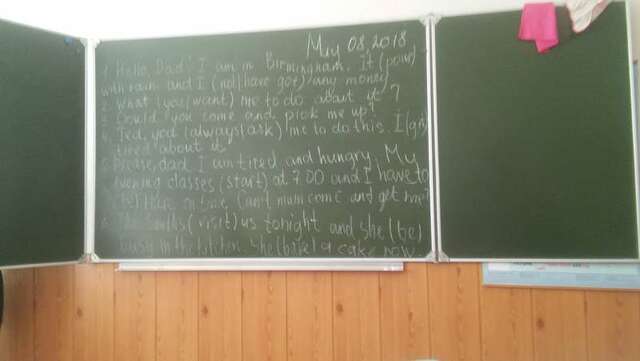 May 08, 2018
1. Hello, Dad! I am in Birmingham. It (pour)
with rain and I (not) have got) any money.
2. What (you (want) me to do about it?
3. Could you come and pick me up?
4. Ted, you (always (ask) me to do this. I (get)
tired about it.
5. Please, dad. I am tired and hungry. My
evening classes (start) at 7.00 and I have to
(be) there on time. Can't mum come and get me?
6. The Smiths (visit) us tonight and she (be)
busy in the kitchen. She (bake) a cake now.